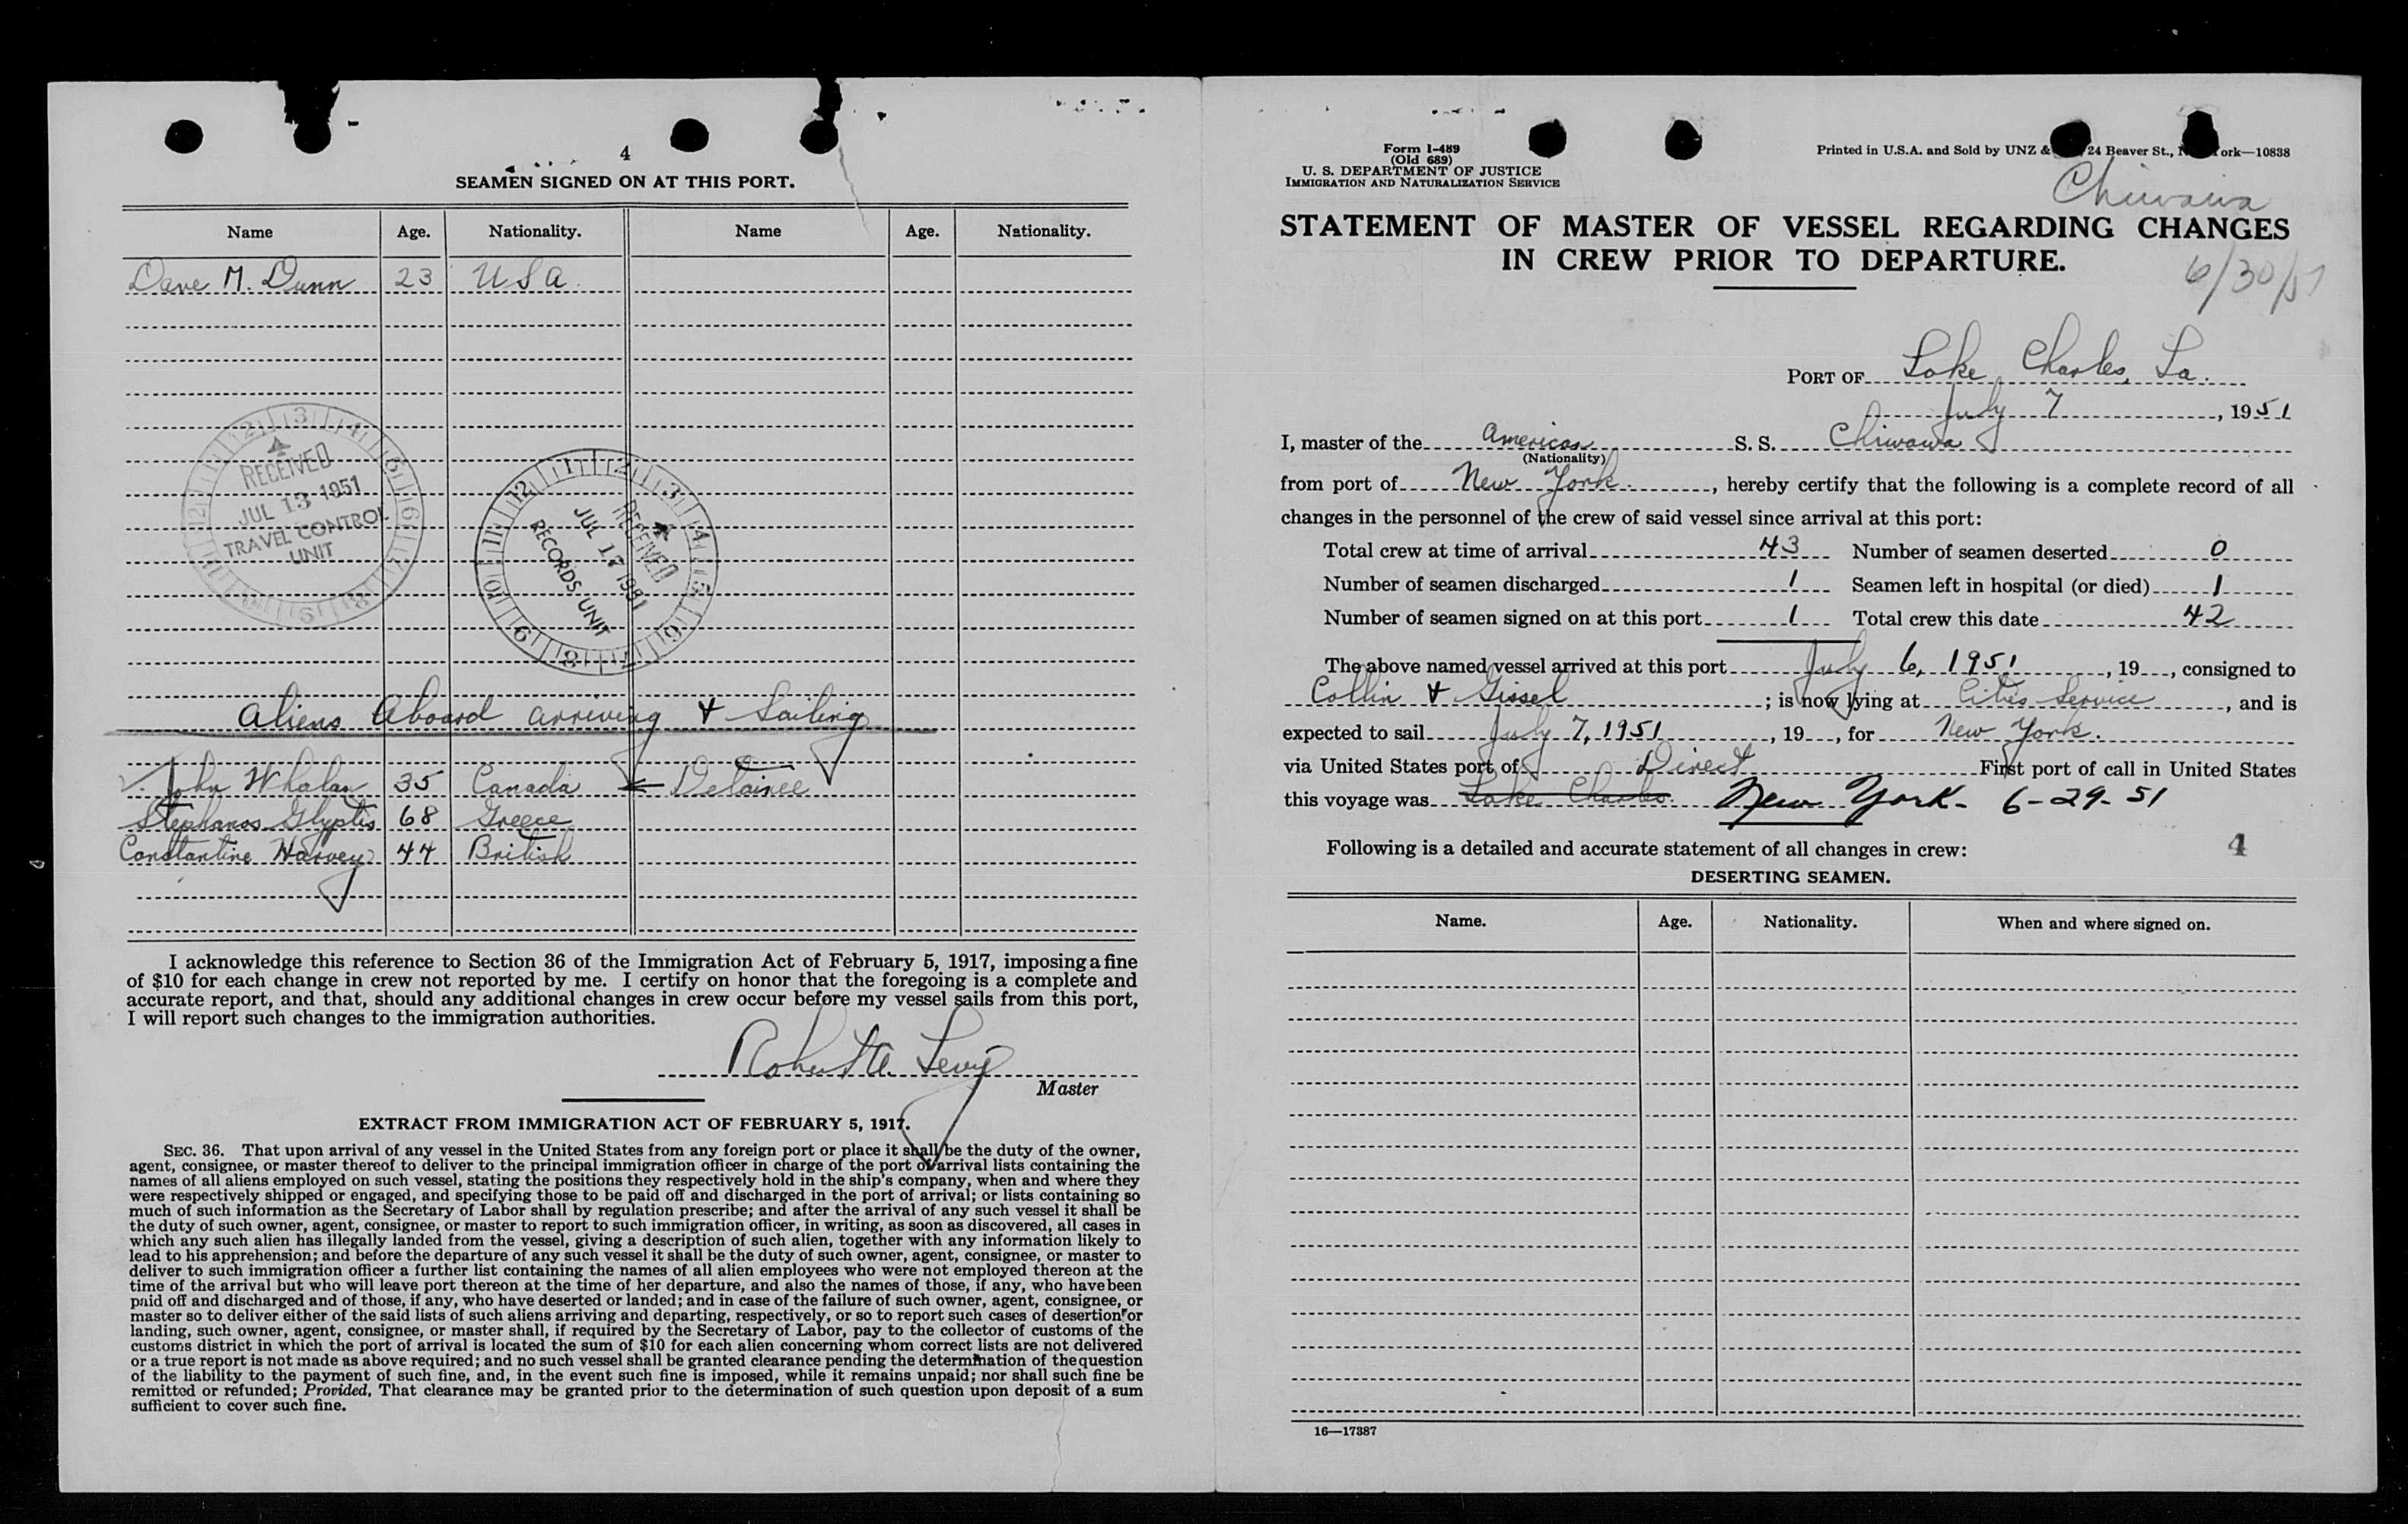 4
SEAMEN SIGNED ON AT THIS PORT.
Name Age. Nationality. Name Age. Nationality.
Dave M. Dunn 23 USA.
RECEIVED
JUL 13 1951
TRAVEL CONTROL
UNIT
RECEIVED
JUL 17 1951
RECORDS UNIT
Aliens Aboard arriving & Sailing
John Whalan 35 Canada ← Detainee
Stephanos Glyptis 68 Greece
Constantine Harvey 44 British
I acknowledge this reference to Section 36 of the Immigration Act of February 5, 1917, imposing a fine
of $10 for each change in crew not reported by me. I certify on honor that the foregoing is a complete and
accurate report, and that, should any additional changes in crew occur before my vessel sails from this port,
I will report such changes to the immigration authorities.
Robert A. Levy
Master
EXTRACT FROM IMMIGRATION ACT OF FEBRUARY 5, 1917.
SEC. 36. That upon arrival of any vessel in the United States from any foreign port or place it shall be the duty of the owner,
agent, consignee, or master thereof to deliver to the principal immigration officer in charge of the port of arrival lists containing the
names of all aliens employed on such vessel, stating the positions they respectively hold in the ship's company, when and where they
were respectively shipped or engaged, and specifying those to be paid off and discharged in the port of arrival; or lists containing so
much of such information as the Secretary of Labor shall by regulation prescribe; and after the arrival of any such vessel it shall be
the duty of such owner, agent, consignee, or master to report to such immigration officer, in writing, as soon as discovered, all cases in
which any such alien has illegally landed from the vessel, giving a description of such alien, together with any information likely to
lead to his apprehension; and before the departure of any such vessel it shall be the duty of such owner, agent, consignee, or master to
deliver to such immigration officer a further list containing the names of all alien employees who were not employed thereon at the
time of the arrival but who will leave port thereon at the time of her departure, and also the names of those, if any, who have been
paid off and discharged and of those, if any, who have deserted or landed; and in case of the failure of such owner, agent, consignee, or
master so to deliver either of the said lists of such aliens arriving and departing, respectively, or so to report such cases of desertion or
landing, such owner, agent, consignee, or master shall, if required by the Secretary of Labor, pay to the collector of customs of the
customs district in which the port of arrival is located the sum of $10 for each alien concerning whom correct lists are not delivered
or a true report is not made as above required; and no such vessel shall be granted clearance pending the determination of the question
of the liability to the payment of such fine, and, in the event such fine is imposed, while it remains unpaid; nor shall such fine be
remitted or refunded; Provided, That clearance may be granted prior to the determination of such question upon deposit of a sum
sufficient to cover such fine.
Form I-489
(Old 689)
U. S. DEPARTMENT OF JUSTICE
IMMIGRATION AND NATURALIZATION SERVICE
Printed in U.S.A. and Sold by UNZ & 24 Beaver St., ork—10838
Chiwawa
STATEMENT OF MASTER OF VESSEL REGARDING CHANGES
IN CREW PRIOR TO DEPARTURE.
6/30/51
PORT OF Lake Charles, La.
July 7, 1951
I, master of the American S. S. Chiwawa
(Nationality)
from port of New York, hereby certify that the following is a complete record of all
changes in the personnel of the crew of said vessel since arrival at this port:
Total crew at time of arrival 43 Number of seamen deserted 0
Number of seamen discharged 1 Seamen left in hospital (or died) 1
Number of seamen signed on at this port 1 Total crew this date 42
The above named vessel arrived at this port July 6, 1951, 19, consigned to
Collin & Gissel; is now lying at Cities Service, and is
expected to sail July 7, 1951, 19, for New York.
via United States port of Direct First port of call in United States
this voyage was Lake Charles. New York - 6-29-51
Following is a detailed and accurate statement of all changes in crew: 4
DESERTING SEAMEN.
Name. Age. Nationality. When and where signed on.
16—17387